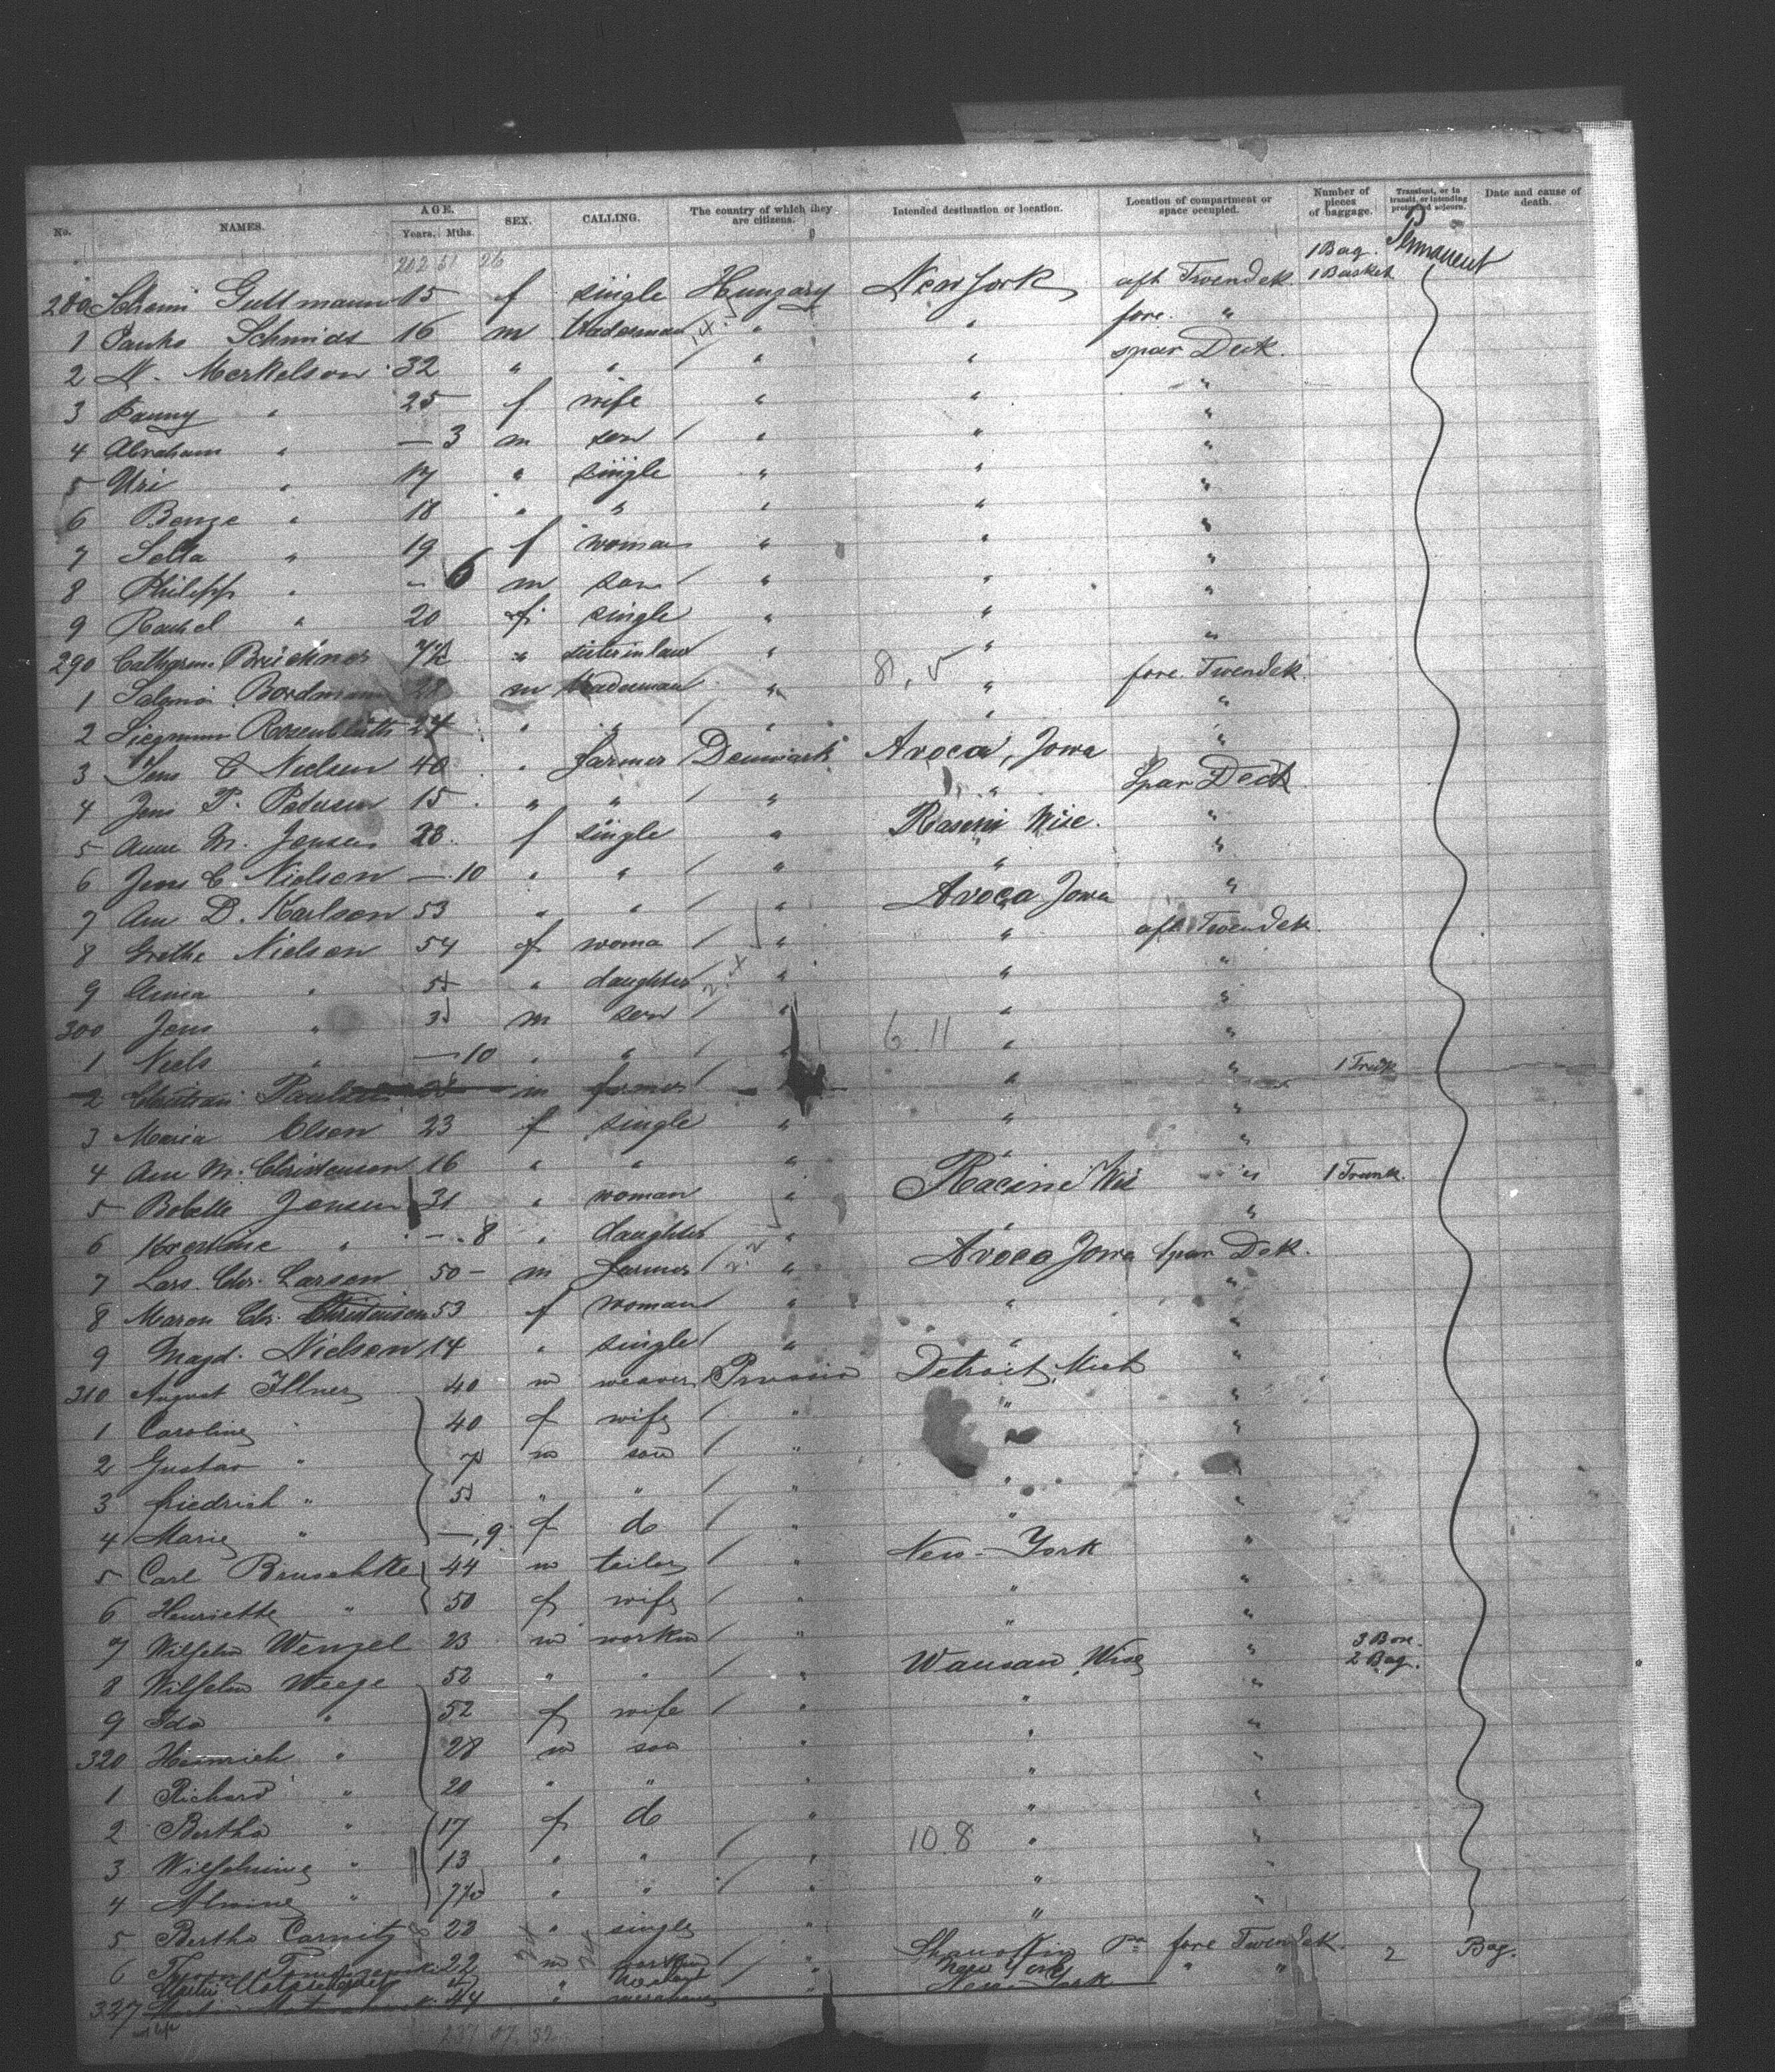 No. NAMES. AGE. Years. Mths. SEX. CALLING. The country of which they are citizens. Intended destination or location. Location of compartment or space occupied. Number of pieces of baggage. Transient, or in transit, or intending protracted sojourn. Date and cause of death.
202 51 26
1 Bag. Permanent
280 Guttmann 15 f single Hungary New York aft Twendek. 1 Basket
1 Schmidt 16 m tradesman " " fore. "
2 N. Merkelson 32 " " " " spar Deck.
3 Fanny " 25 f wife " " "
4 Abraham " — 3 m son " " "
5 Uri " 17 " single " " "
6 Benze " 18 " " " " "
7 " 19 f woman " " "
8 Philipp " - 6 m son " " "
9 Rachel " 20 f single " " "
290 " sister in law " " "
1 m tradesman " 8, 5 " fore. Twendek.
2 Rosenblüth 24 " " " " "
3 Jens C Nielsen 40 " farmer Denmark Avoca, Iowa "
4 Jens P. Petersen 15 " " " " Spar Deck
5 Anne M. Jensen 28 f single " Rasine Wisc. "
6 Jens C Nielsen — 10 " " " " "
7 Ane D. Karlsen 53 " " " Avoca Iowa "
8 Grethe Nielsen 54 f woma " " aft Twendek.
9 Anna " 5 " daughter " " "
300 Jens " 3 m son " " "
1 Niels " — 10 " " " 6. 11 " "
2 Christian m farmer " " " 1 Trunk
3 Maria Olsen 23 f single " " "
4 Ane M. Christensen 16 " " " " "
5 Bolette Jensen 31 " woman " Racine Wis " 1 Trunk.
6 Krestine " — 8 " daughter " " "
7 Lars. Chr. Larsen 50 - m farmer " Avoca Iowa Spar Dek.
8 Maren Chr. Christensen 53 f woman " " "
9 Magd. Nielsen 14 " single " " "
310 August Illner 40 m weaver Prussia Detroit, Mich "
1 Caroline " 40 f wife " " "
2 Gustav " 7 m son " " "
3 Friedrich " 5 " " " " "
4 Marie " — 9 f do " " "
5 Carl Bruschke 44 m tailor " New-York "
6 Henriette " 50 f wife " " "
7 Wilhelm Wenzel 23 m workm " " " 3 Box.
8 Wilhelm Weege 52 " " " Wausau, Wisc " 2 Bag.
9 Ida " 52 f wife " " "
320 Heinrich " 28 m son " " "
1 Richard " 20 " " " " "
2 Bertha " 17 f do " " "
3 Wilhelmine " 13 " " " 10 8 " "
4 Alwine " " " " " "
5 Bertha Carnitz 22 " single " " "
6 22 m workm " Pa fore Twendek. 2 Bag.
" " New York " "
327 44 " " New-York
not left
237 07. 32